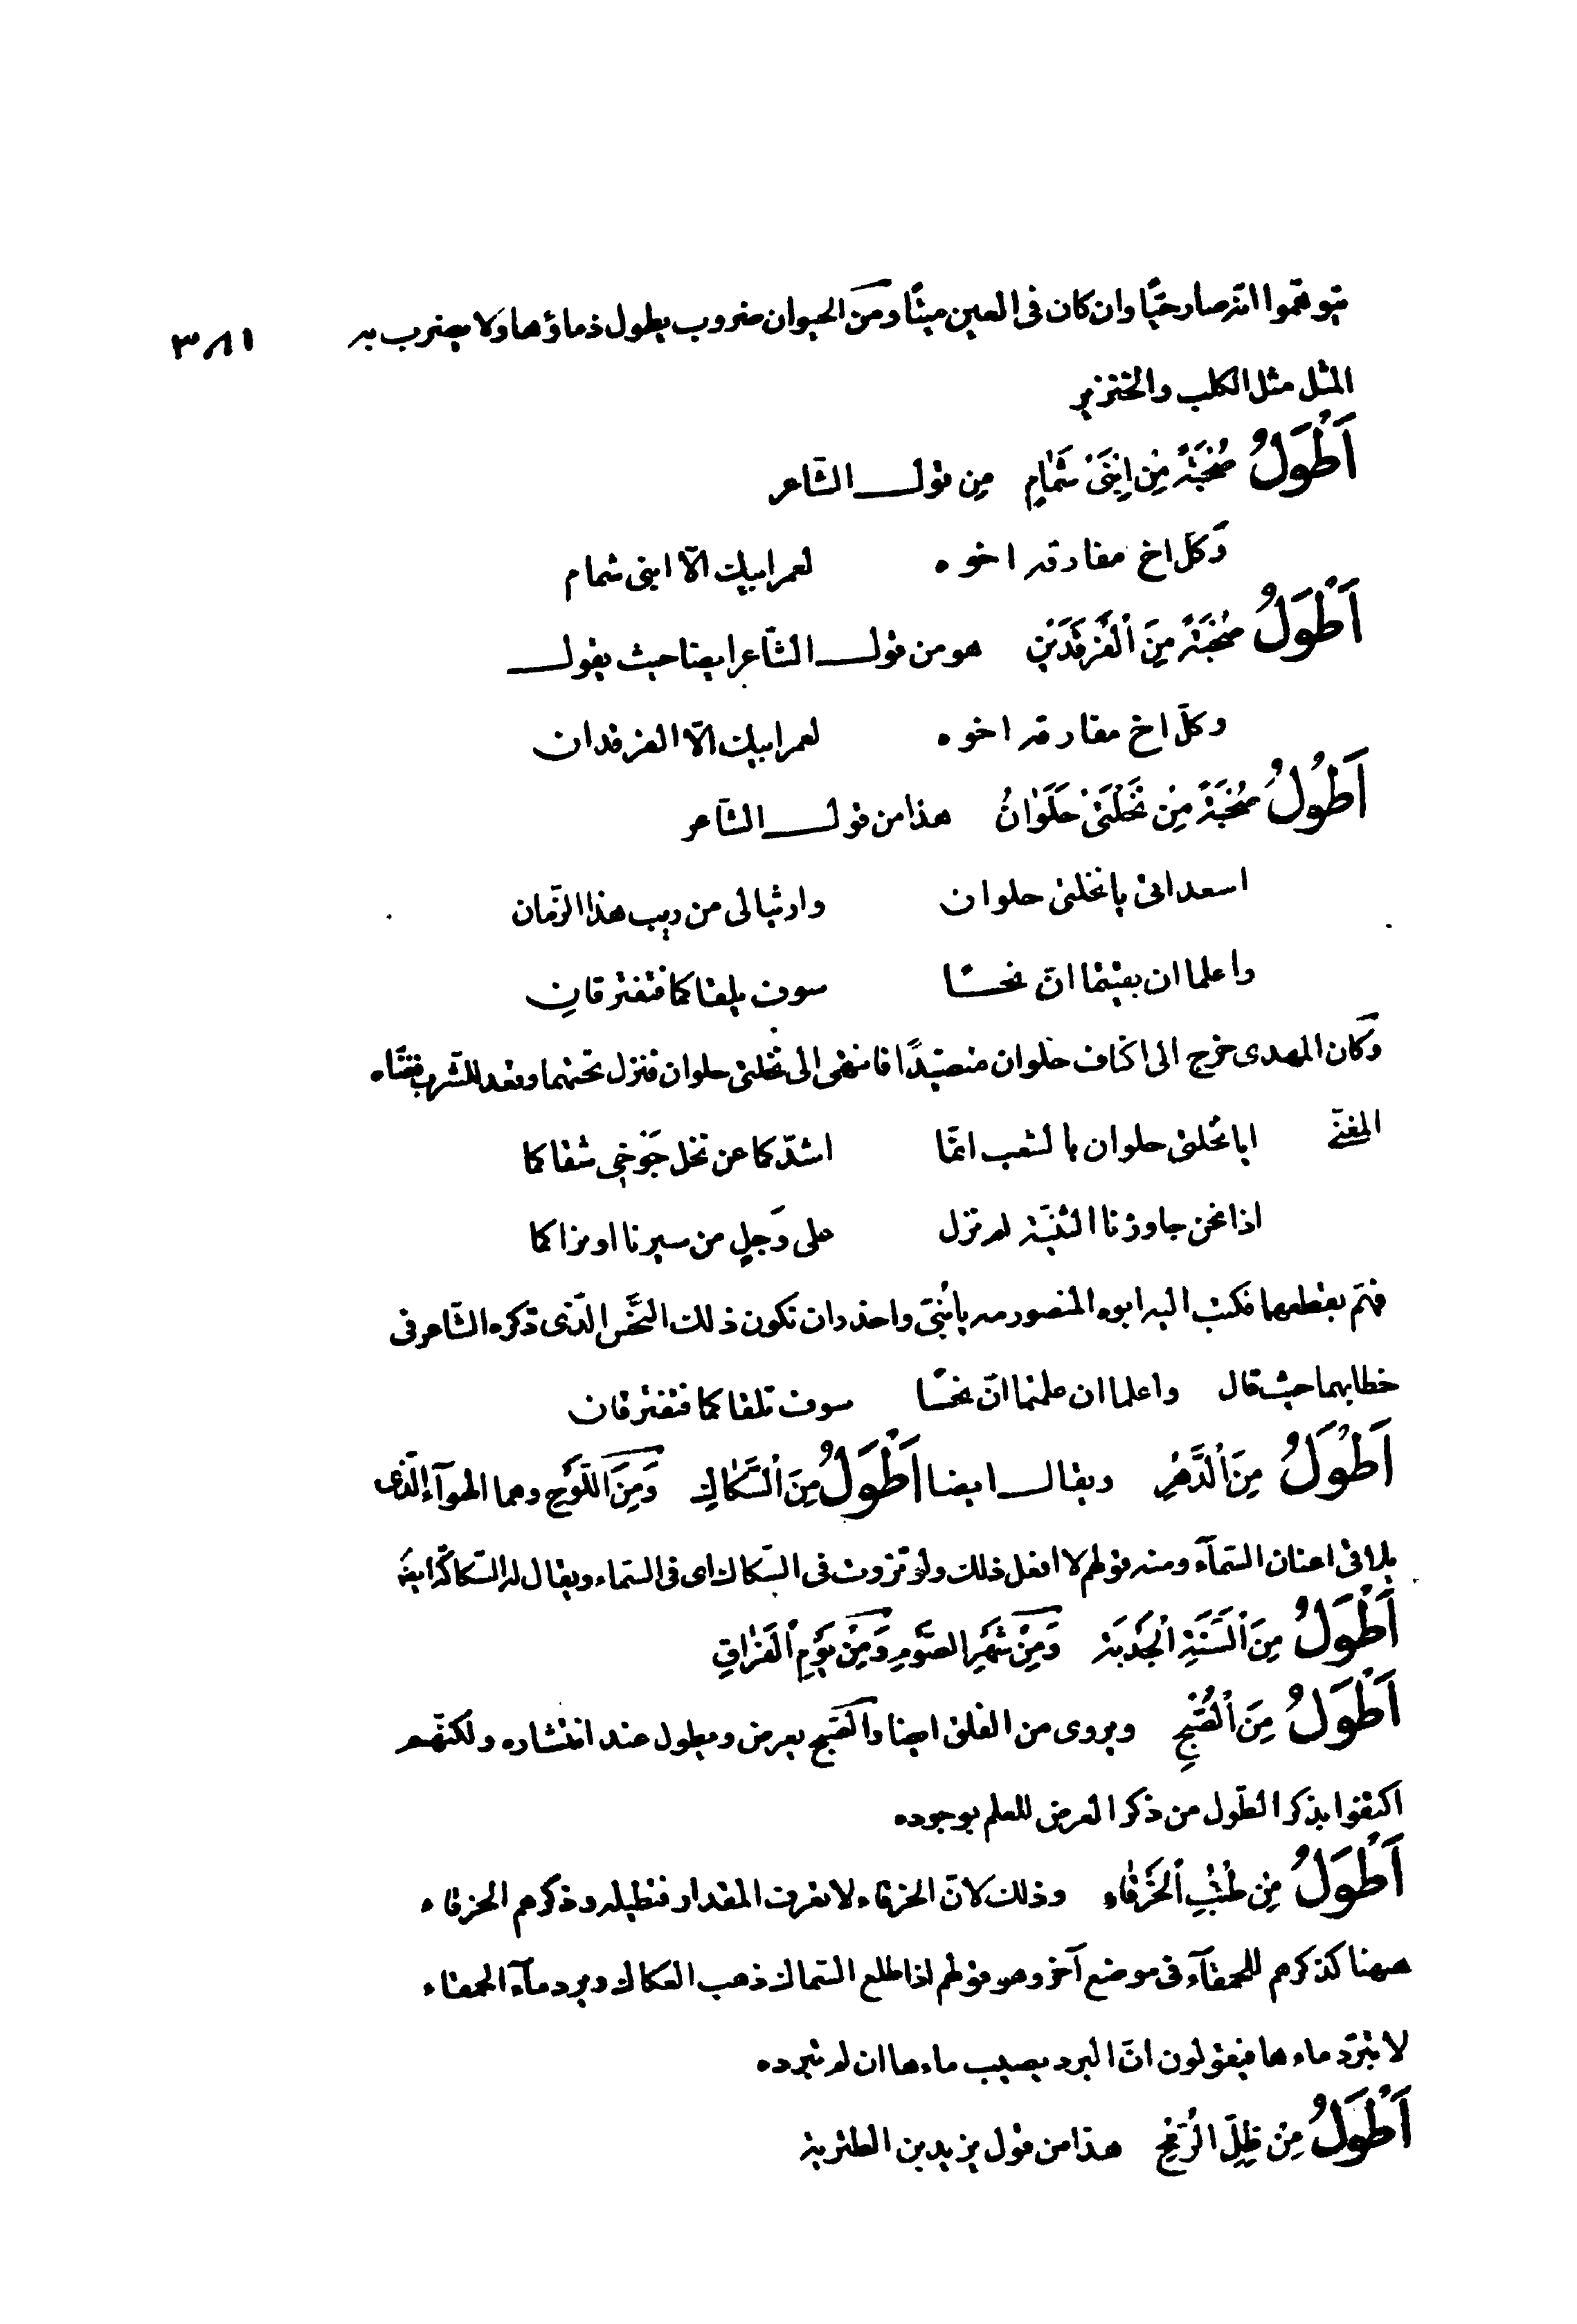 يتوهّموا انّه صار حيًّا وان كان فى العين ميتًا ومن الحيوان ضروب يطول ذماؤها ولا يضرب به
٣٨١
المثل مثل الكلب والخنزير
اَطْوَلُ صُحْبَةً مِنِ ابْنَىْ شَمَامِ من قول الشّاعر
وكلّ اخ مفارقه اخوه لعمر ابيك الّا ابنى شمام
اَطْوَلُ صُحْبَةً مِنَ اَلْفَرْقَدَيْنِ هو من قول الشّاعر ايضا حيث يقول
وكلّ اخ مفارقه اخوه لعمر ابيك الّا الفرقدان
اَطْوَلُ صُحْبَةً مِنْ نَخْلَتَىْ حُلَوَانُ هذا من قول الشّاعر
اسعدانى يا نخلتى حلوان وارثيا لى من ريب هذا الزّمان
واعلما ان بقيتما انّ نحسًا سوف يلقاكما فتفترقانِ
وكان المهدى خرج الى اكناف حلوان متصيّدًا فانتهى الى نخلتى حلوان فنزل تحتهما وقعد للشّرب فغنّاه
المغنّى ايا نخلتى حلوان بالشعب انّما اشذّكما عن نخل جَوْخَى شقاكما
اذا نحن جاوزنا الثنيّة لم نزل على وَجلٍ من سيرنا او نراكما
فهمّ بقطعهما فكتب اليه ابوه المنصور مه يا بُنىّ واحذر ان تكون ذلك النّحس الّذى ذكره الشّاعر فى
خطابهما حيث قال واعلما ان علمتما انّ نحسًا سوف تلقاكما فتفترقان
اَطْوَلُ مِنَ اَلدَّهْرِ ويقال ايضا اَطْوَلُ مِنَ اَلسُّكَاكِ وَمِنَ اللَّوْحِ وهما الهوآء الّذى
يلاقى اعنان السّمآء ومنه قولهم لا افعل ذلك ولو نزوت فى السّكاك اى فى السّماء ويقال له السّكاكة ايضا
اَطْوَلُ مِنَ اَلسَّنَةِ الْجَدْبَةِ وَمِنْ شَهْرِ الصَّوْمِ وَمِنْ يَوْمِ اَلْفِرَاقِ
اَطْوَلُ مِنَ اَلصُّبْحِ ويروى من الفلق ايضا والصّبح يعرض ويطول عند انتشاره ولكنّهم
اكتفوا بذكر الطّول من ذكر العرض للعلم بوجوده
اَطْوَلُ مِنْ طُنُبِ اَلْخَرْقَاءِ وذلك لانّ الخرقاء لا تعرف المقدار فتطيله وذكرهم الخرقاء
ههنا كذكرهم للحمقآء فى موضع آخر وهو قولهم اذا طلع السّماك ذهب العكاك وبرد مآء الحمقاء
لا تبرّد ماءها فيقولون انّ البرد يصيب ماءها ان لم تبرده
اَطْوَلُ مِنْ ظِلِّ الرُّمْحِ هذا من قول يزيد بن الطثرية